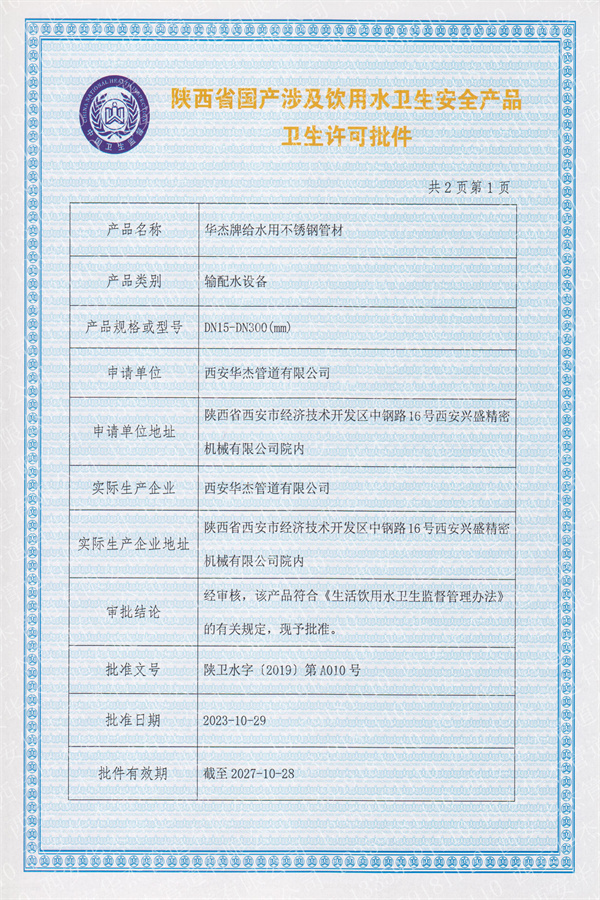 陕西省国产涉及饮用水卫生安全产品
卫生许可批件
中国卫生监督
共2页第1页
产品名称 华杰牌给水用不锈钢管材
产品类别 输配水设备
产品规格或型号 DN15-DN300(mm)
申请单位 西安华杰管道有限公司
申请单位地址 陕西省西安市经济技术开发区中钢路16号西安兴盛精密
机械有限公司院内
实际生产企业 西安华杰管道有限公司
实际生产企业地址 陕西省西安市经济技术开发区中钢路16号西安兴盛精密
机械有限公司院内
审批结论 经审核，该产品符合《生活饮用水卫生监督管理办法》
的有关规定，现予批准。
批准文号 陕卫水字〔2019〕第A010号
批准日期 2023-10-29
批件有效期 截至2027-10-28